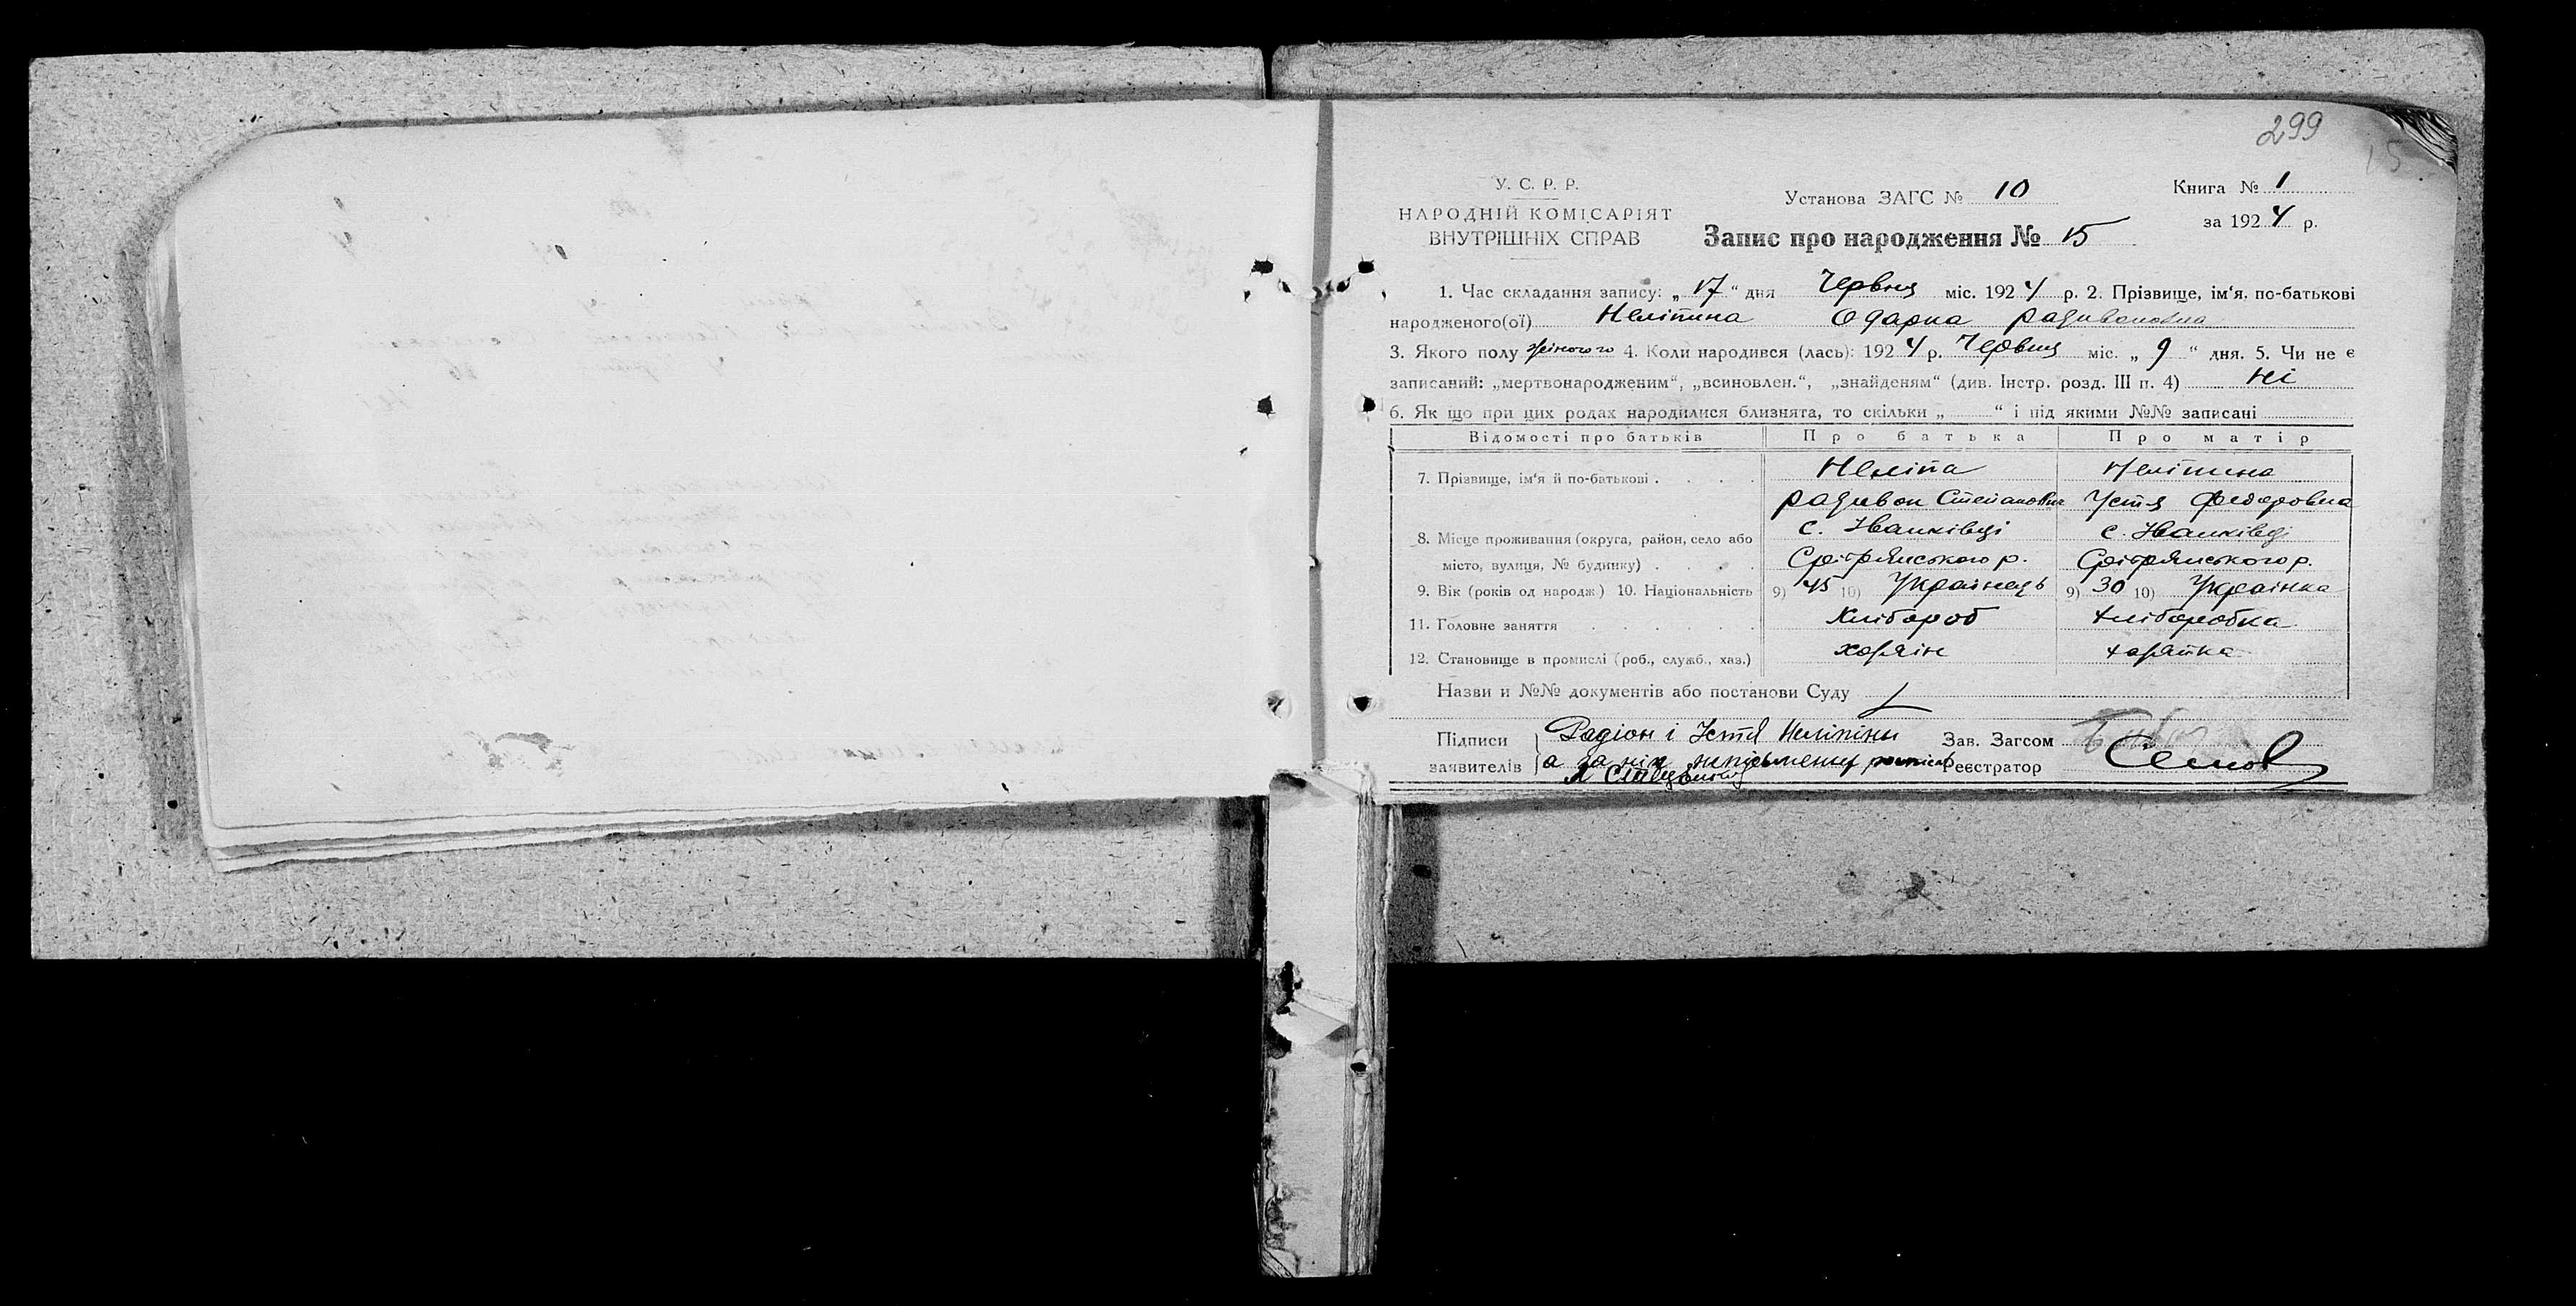 299
15
У. С. Р. Р.
НАРОДНІЙ КОМІСАРІЯТ
ВНУТРІШНІХ СПРАВ
Установа ЗАГС № 10
Книга № 1
за 1924 р.
Запис про народження № 15
1. Час складання запису: „17“ дня Червня міс. 1924 р. 2. Прізвище, ім‘я, по-батькові
народженого(ої) Неліпина Одарка Радивоновна
3. Якого полу жіночого 4. Коли народився (лась): 1924 р. Червня міс. „9“ дня. 5. Чи не є
записаний: „мертвонародженим“, „всиновлен.“, „знайденям“ (див. Інстр. розд. III п. 4) Ні
6. Як що при цих родах народилися близнята, то скільки „ “ і під якими №№ записані
Відомості про батьків Про батька Про матір
7. Прізвище, ім‘я й по-батькові Неліпа Неліпина
Радивон Степанович Устя Федоровна
8. Місце проживання (округа, район, село або с. Іванківці с. Іванківці
місто, вулиця, № будинку) Срібрянського р. Срібрянського р.
9. Вік (років од народж) 10. Національність 9) 45 10) Українець 9) 30 10) Українка
11. Головне заняття Хлібороб Хліборобка
12. Становище в промислі (роб., служб., хаз.) хазяін хазяйка
Назви и №№ документів або постанови Суду
Підписи Радіон і Устя Неліпіни Зав. Загсом
заявителів а за них неписьменних Реєстратор